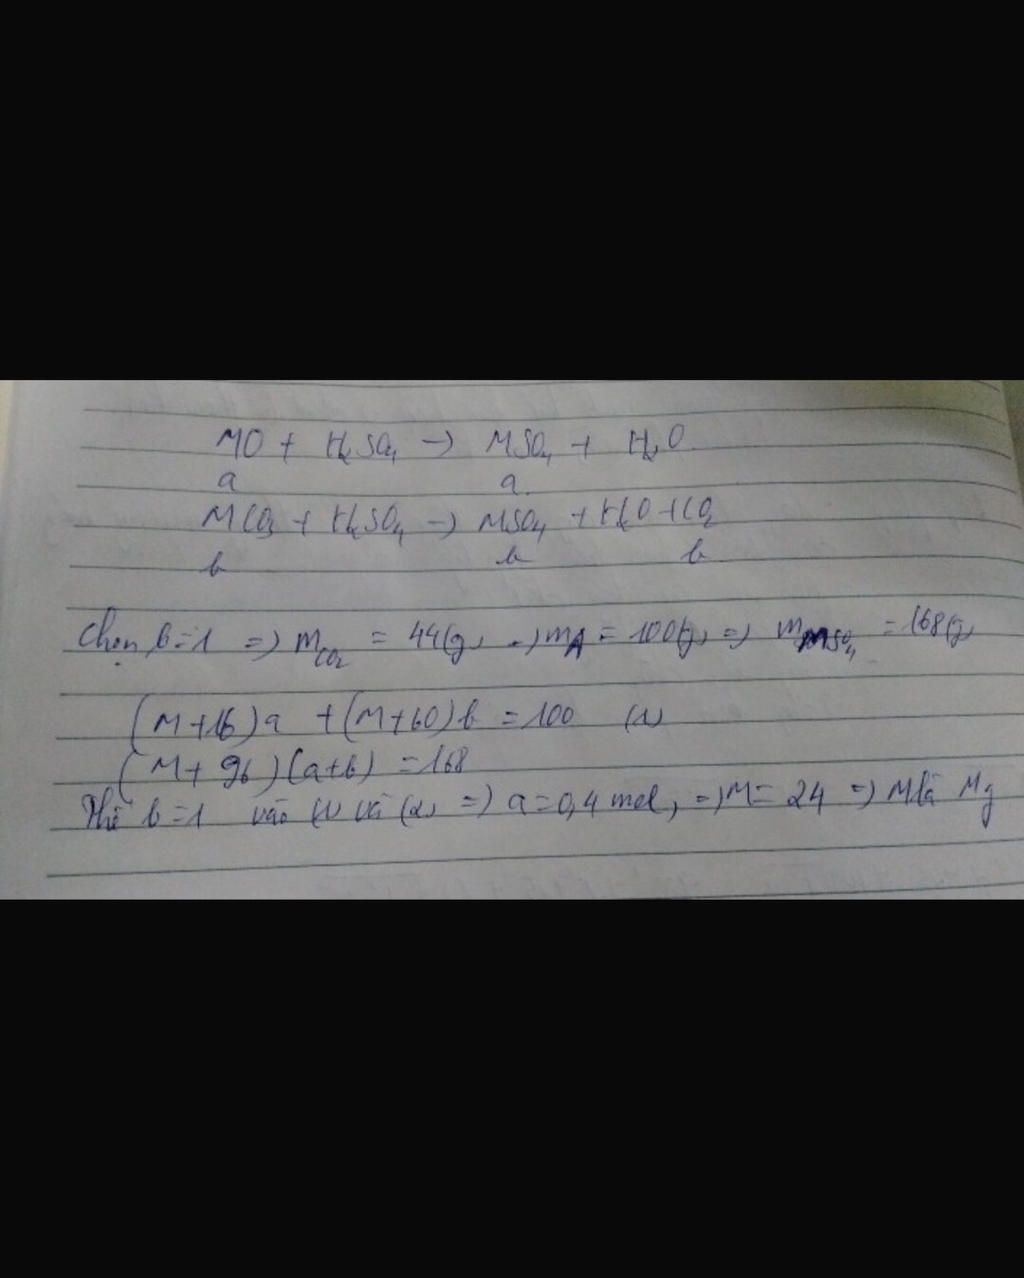 MO + H₂SO₄ → MSO₄ + H₂O
a a
MCO₃ + H₂SO₄ → MSO₄ + H₂O + CO₂
b b b
Chọn b=1 => m_CO₂ = 44(g) → m_A = 100(g) => m_MSO₄ = 168(g)
(M+16)a + (M+60)b = 100 (1)
(M+96)(a+b) = 168
Thế b=1 vào (1) và (2) => a=0,4 mol, => M = 24 => M là Mg